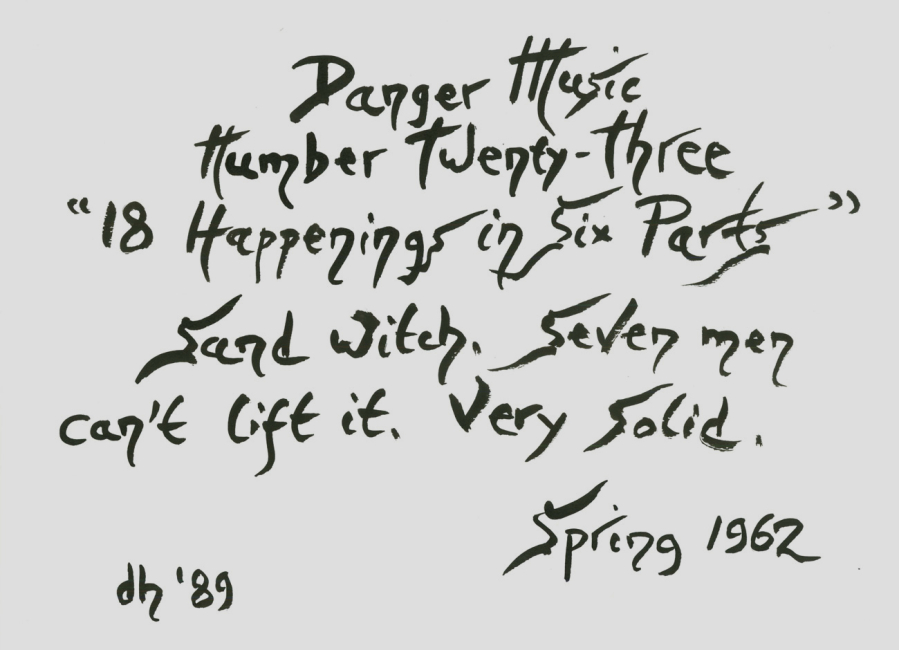 Danger Music
Number Twenty-Three
“18 Happenings in Six Parts”
Sand witch. Seven men
can't lift it. Very solid.
Spring 1962
dh '89